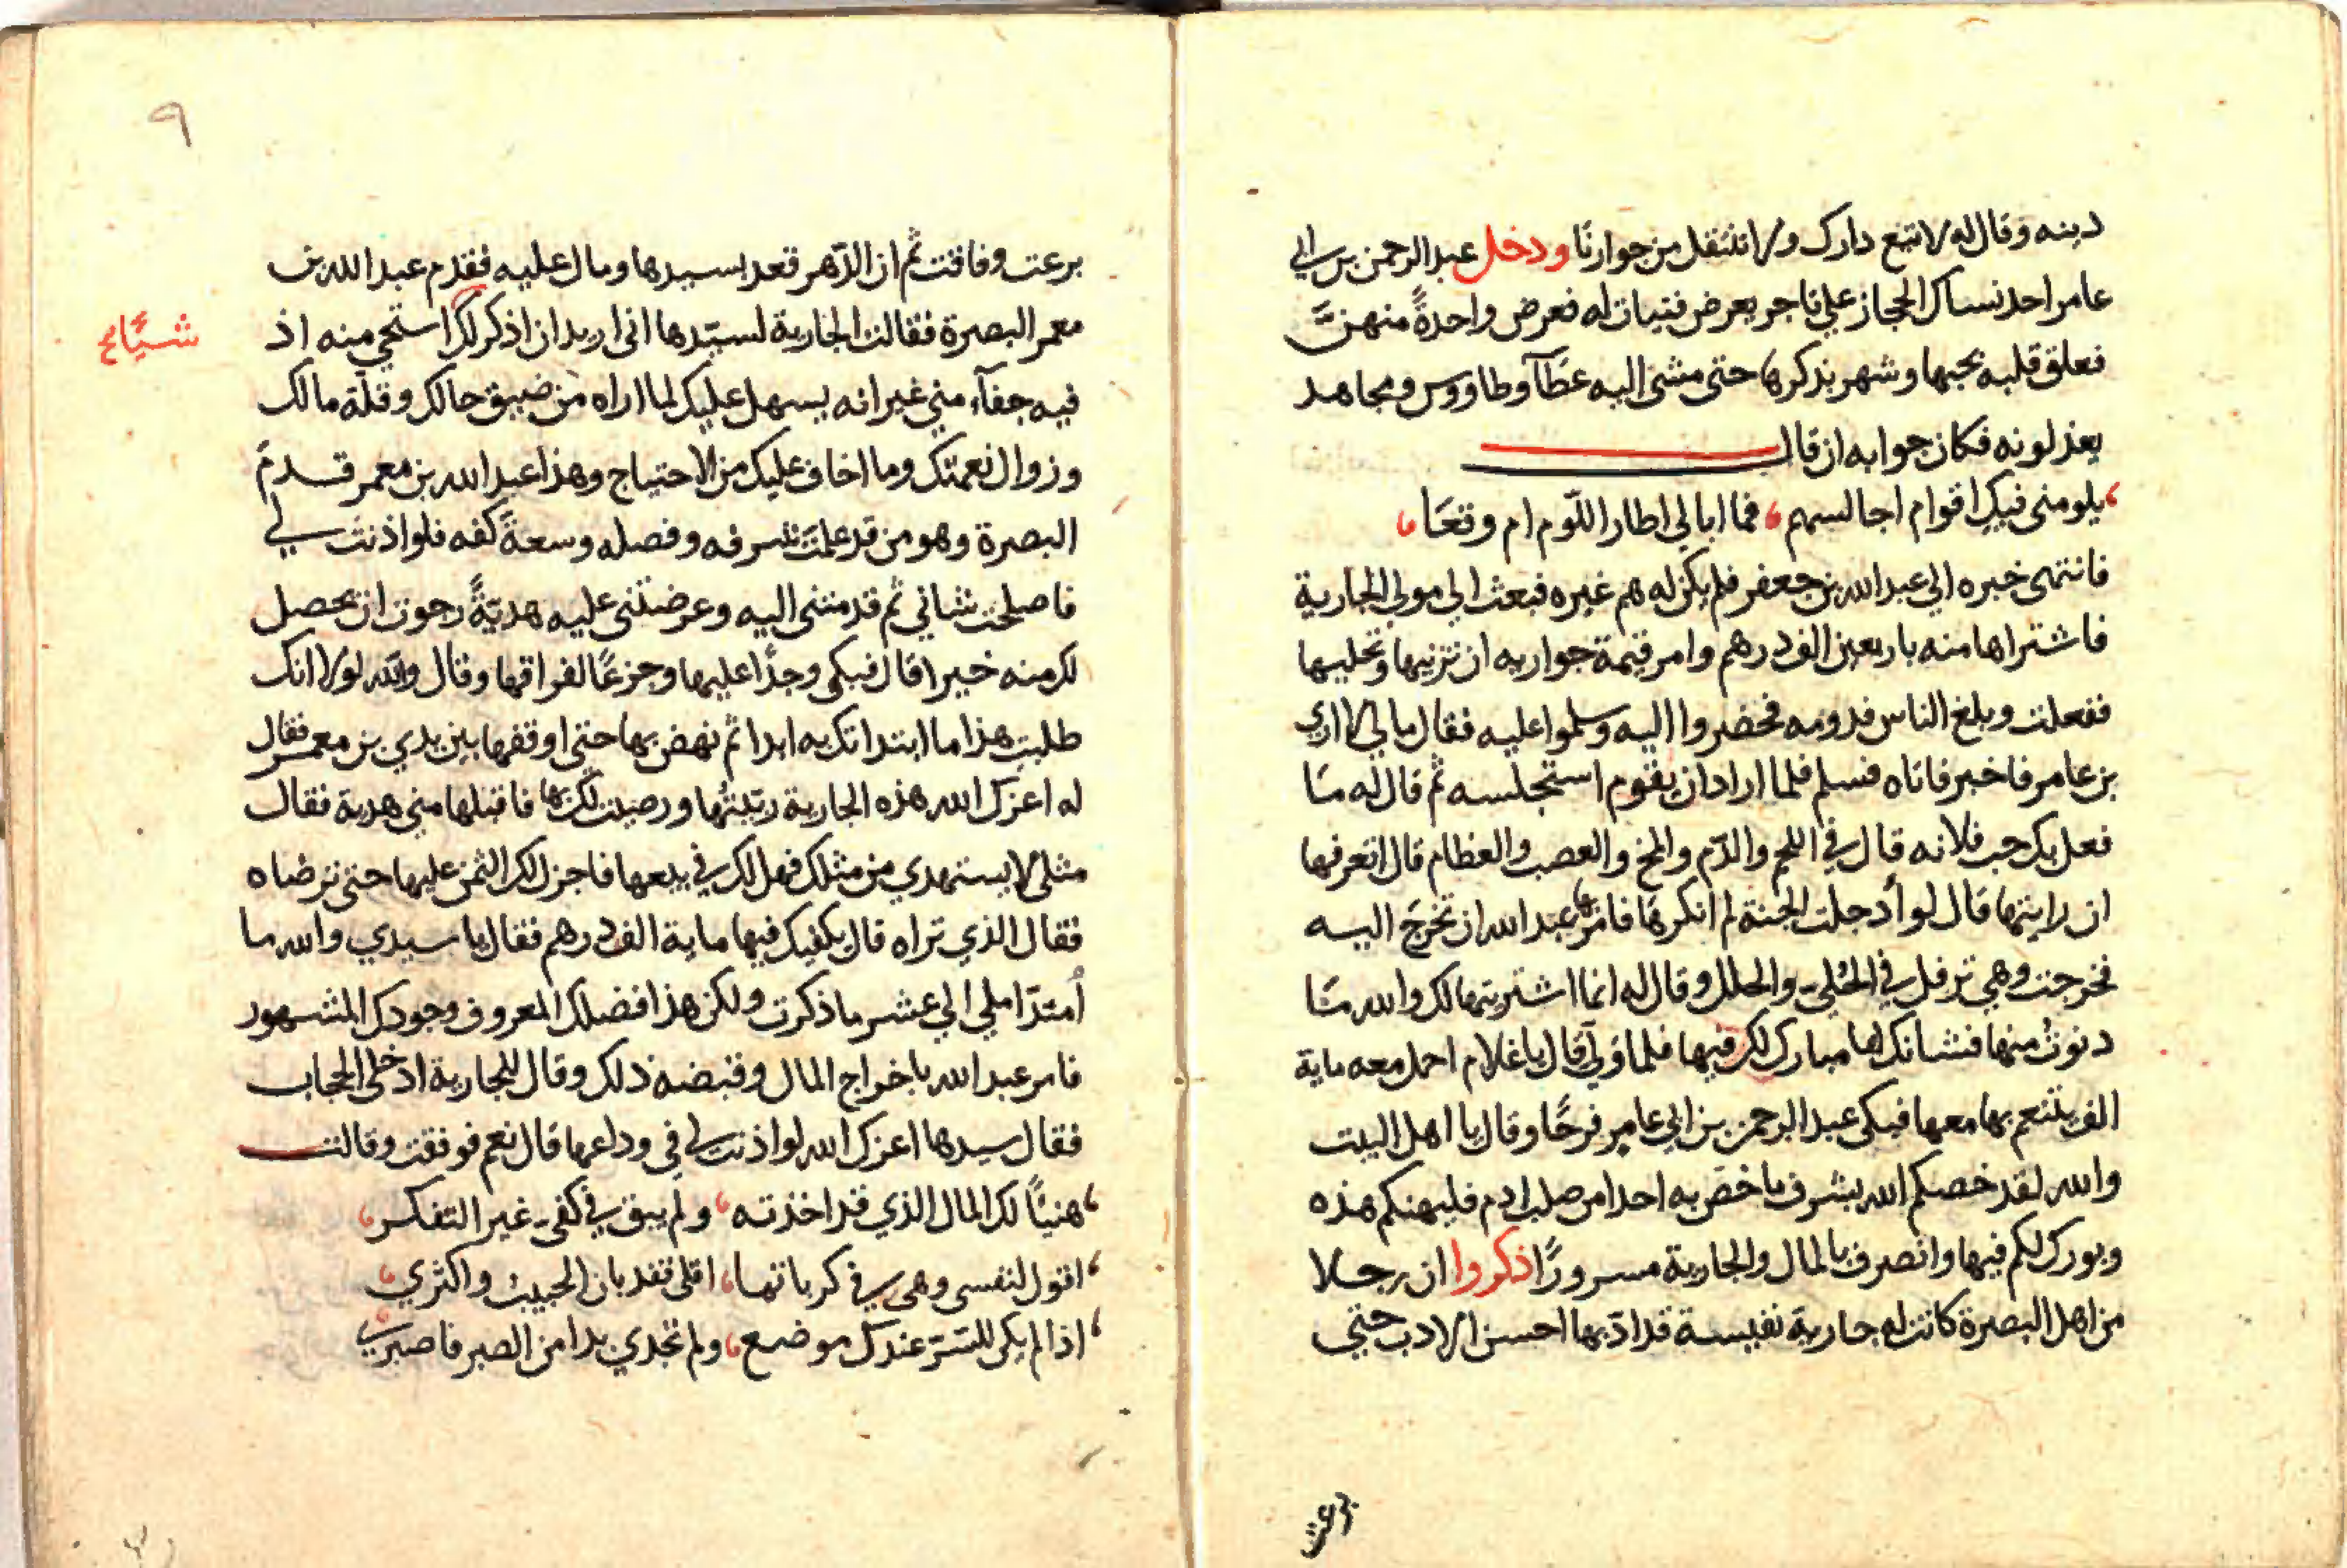 دينه وقال له لا تبع دارك ولا تنتقل من جوارنا ودخل عبد الرحمن بن ابي
عامر احد نساك الحجاز علي تاجر يعرض فتيات له فعرض واحدةً منهنّ
فعلق قلبه بحبها وشهر بذكرها حتى مشى اليه عطآ وطاووس ومجاهد
يعذلونه فكان جوابه ان قال
يلومنى فيك اقوام اجالسهم فما ابالي اطار اللّوم ام وقعَا
فانتهى خبره الي عبد الله بن جعفر فلم يكن له هم غيره فبعث الي مولي الجارية
فاشتراها منه باربعين الف درهم وامر قيمة جواريه ان تزنيها وتحليها
ففعلت وبلغ الناس قدومه فحضروا اليه وسلموا عليه فقال مالي لا اري
بن عامر فاخبر فاتاه فسلم فلما اراد ان يقوم استجلسه ثم قال له مَا
فعل بك حب فلانه قال في اللحم والدّم والمخ والعصب والعظام قال اتعرفها
ان رايتها قال لو أدخلت الجنة لم انكرها فامرها عبد الله ان تخرج اليه
فخرجت وهي ترفل في الحُلي والحلل وقال له انما اشتريتها لك والله مَا
دنوتُ منها فشانك بها مبارك لك فيها فلما ولي قال يا غلام احمل معه ماية
الف يتنعم بها معها فبكى عبد الرحمن بن ابي عامر فرحًا وقال يا اهل البيت
والله لقد خصكم الله بشرف ما خصّ به احدا من صلب ادم فليهنكم هذه
وبورك لكم فيها وانصرف بالمال والجارية مسرورًا اذكروا ان رجلا
من اهل البصرة كانت له جارية نفيسة قد ادّبها احسن الادب حتي
برعت
٩
برعت وفاقت ثم ان الدّهر قعد بسيدها ومال عليه فقدم عبد الله بن
معمر البصرة فقالت الجارية لسيّدها انى اريد ان اذكر لك استحي منه اذ
شيًا صح
فيه جفآء مني غير انه يسهل عليك لما اراه من ضيق حالك وقلّة مالك
وزوال نعمتك وما اخاف عليك من الاحتياج وهذا عبد الله بن معمر قدم
البصرة وهو من قد علمتَ شرفه وفضله وسعةَ كفه فلو اذنت لي
فاصلحت شاني ثم قدمتنى اليه وعرضتنى عليه هديّةً رجوت ان يحصل
لك منه خيرا قال فبكى وجدًا عليها وجزعًا لفراقها وقال والله لولا انك
طلبت هذا ما ابتداتك به ابدا ثم نهض بها حتى اوقفها بين يدي بن معمر فقال
له اعزك الله هذه الجارية ربّيتُها ورضيت لك بها فاقبلها مني هدية فقال
مثلى لا يستهدي من مثلك فهل لك في بيعها فاجزل لك الثمن عليها حتى ترضاه
فقال الذي تراه قال يكفيك فيها ماية الف درهم فقال يا سيدي والله ما
اُمتدّ املي الي عشر ما ذكرت ولكن هذا فضلك المعروف وجودك المشهور
فامر عبد الله باخراج المال وقبضه ذلك وقال للجارية ادخلى الحجاب
فقال سيدها اعزك الله لو اذنت لي في وداعها قال نعم فوقفت وقالت
هنيئًا لك المال الذي قد اخذته ولم يبق في كفى غير التفكر
اقول لنفسى وهى في كرباتها اقلى فقد بان الحبيب واكثري
اذا لم يكن للتسرّ عندك موضع ولم تجدي بدا من الصبر فاصبري